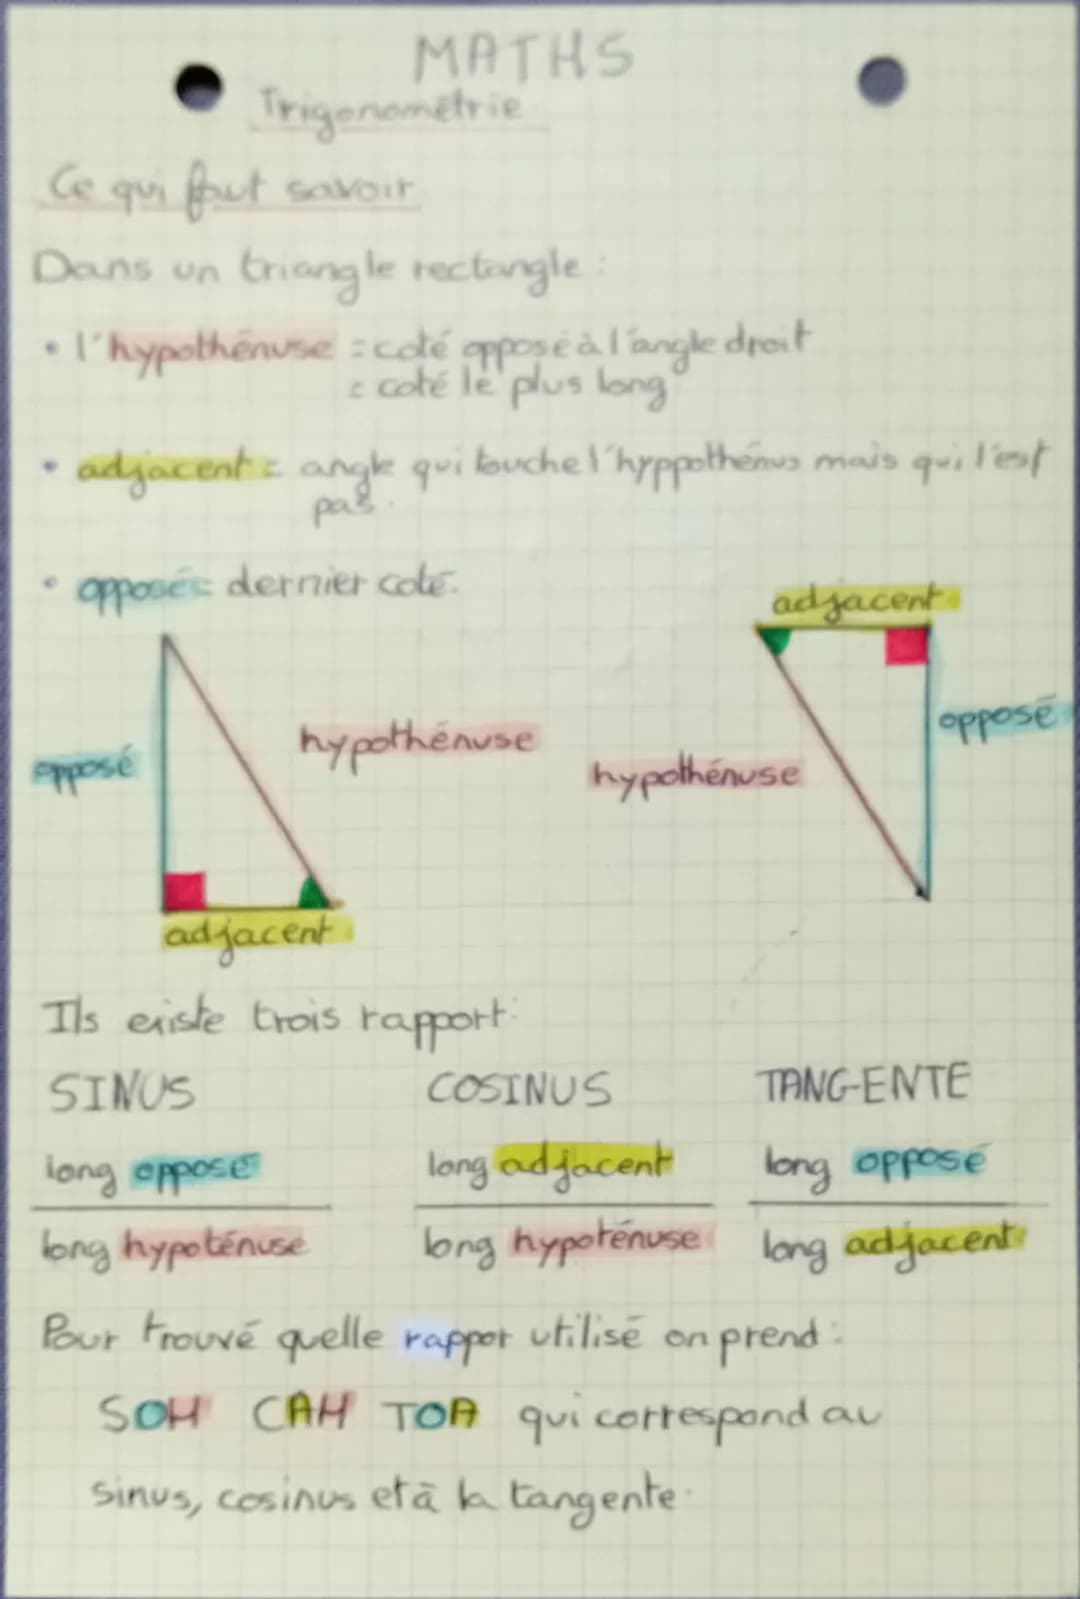 MATHS
Trigonométrie
Ce qui faut savoir
Dans un triangle rectangle :
• l'hypothénuse = coté opposé à l'angle droit
= coté le plus long
• adjacent = angle qui touche l'hyppothénus mais qui l'est
pas.
• opposé = dernier coté.
adjacent
opposé
hypothénuse
opposé
hypothénuse
adjacent
Ils existe trois rapport:
SINUS COSINUS TANGENTE
long opposé long adjacent long opposé
long hypoténuse long hypoténuse long adjacent
Pour trouvé quelle rappor utilisé on prend :
SOH CAH TOA qui correspond au
sinus, cosinus et à la tangente.